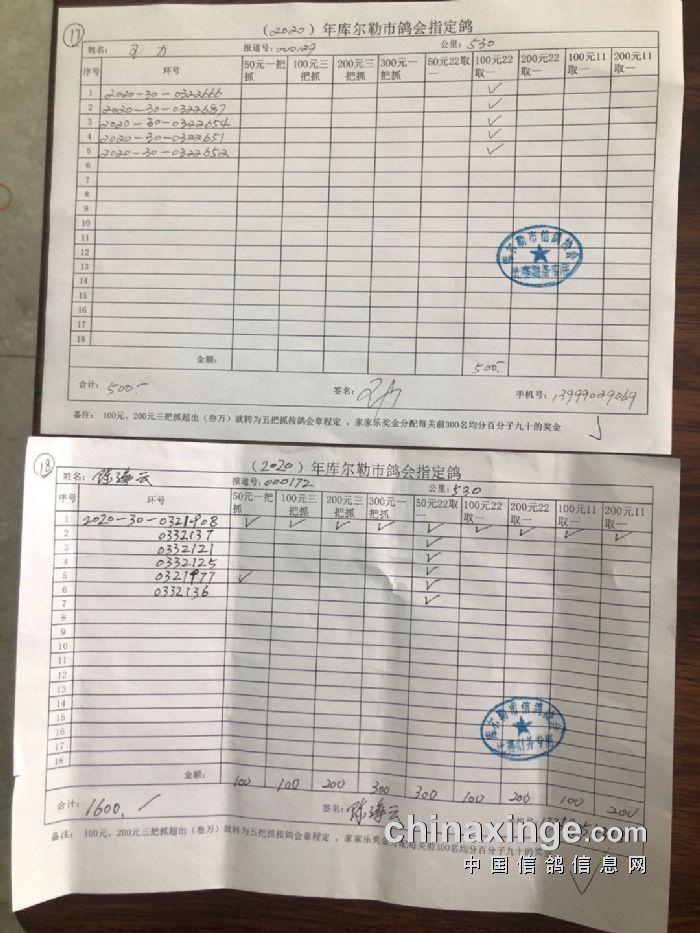 17
(2020)年库尔勒市鸽会指定鸽
姓名： 报道号：000129 公里：530
序号 环号 50元一把抓 100元三把抓 200元三把抓 300元一把抓 50元22取一 100元22取一 200元22取一 100元11取一 200元11取一
1 2020-30-0322666 ✓
2 2020-30-0322687 ✓
3 2020-30-0322654 ✓
4 2020-30-0322651 ✓
5 2020-30-0322652 ✓
6
7
8
9
10
11
12
13
14
15
16
17
18
库尔勒市信鸽协会
金额： 500.
合计：500. 签名： 手机号：13999029069
备注： 100元、200元三把抓超出（叁万）就转为五把抓按鸽会章程定，家家乐奖金分配每关前300名均分百分子九十的奖金
18
(2020)年库尔勒市鸽会指定鸽
姓名： 报道号：000172 公里：530
序号 环号 50元一把抓 100元三把抓 200元三把抓 300元一把抓 50元22取一 100元22取一 200元22取一 100元11取一 200元11取一
1 2020-30-0321908 ✓ ✓ ✓ ✓ ✓ ✓ ✓ ✓ ✓
2 0332137 ✓
3 0332121 ✓
4 0332125 ✓
5 0321977 ✓ ✓
6 0332136 ✓
7
8
9
10
11
12
13
14
15
16
17
18
库尔勒市信鸽协会
金额： 100 100 200 300 300 100 200 100 200
合计：1600. 签名：
备注： 100元、200元三把抓超出（叁万）就转为五把抓按鸽会章程定，家家乐奖金分配每关前300名均分百分子九十的奖金
chinaxinge.com
中国信鸽信息网